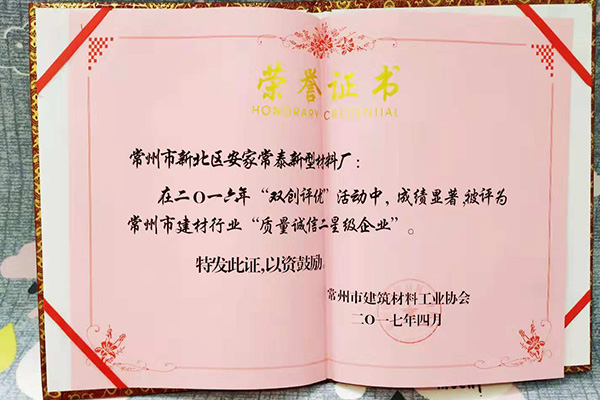 荣誉证书
HONORARY CREDENTIAL
常州市新北区安家常泰新型材料厂：
在二〇一六年“双创评优”活动中，成绩显著，被评为
常州市建材行业“质量诚信二星级企业”。
特发此证，以资鼓励。
常州市建筑材料工业协会
二〇一七年四月